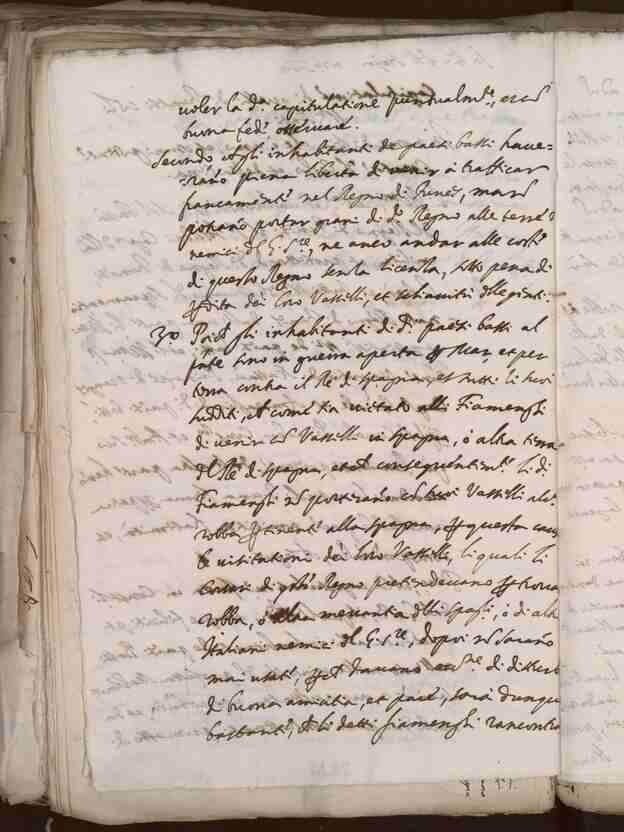 voler la d.ª capitulatione puntualm.te, et con
buona fede osservare.
Secondo che gli inhabitanti de paesi bassi have-
-rano piena libertà di venir à trafficar
francamente nel Regno di Tunesi, ma non
potrano portar grani di d.º Regno alle terre
nemici del G. S.re, ne anco andar alle coste
di questo Regno senza licenza, sotto pena di
perdita dei loro Vasselli, et schiavitù delle genti.
3º Poiche gli inhabitanti di d.i paesi bassi al
sono in guerra aperta per Mar, et per
terra contra il Re di Spagna, et tutti li suoi
sudditi, et come sia vietato alli Fiamenghi
di venir con Vasselli in Spagna, ò altra terra
del Re di Spagna, et consequentem.te li d.i
Fiamenghi non portirano con suoi Vasselli alc.ª
robba alla Spagna, per questa causa
le visitationi dei loro Vasselli, li quali li
Corsari di questo Regno per trovar
robba, ò altra mercantia delli Spag.li, ò di altri
Italiani nemici del G. S.re, dopoi non sarano
mai usate, di
di buona amicitia, et pace, sarà dunque
bastante, che li detti fiamenghi rancontra